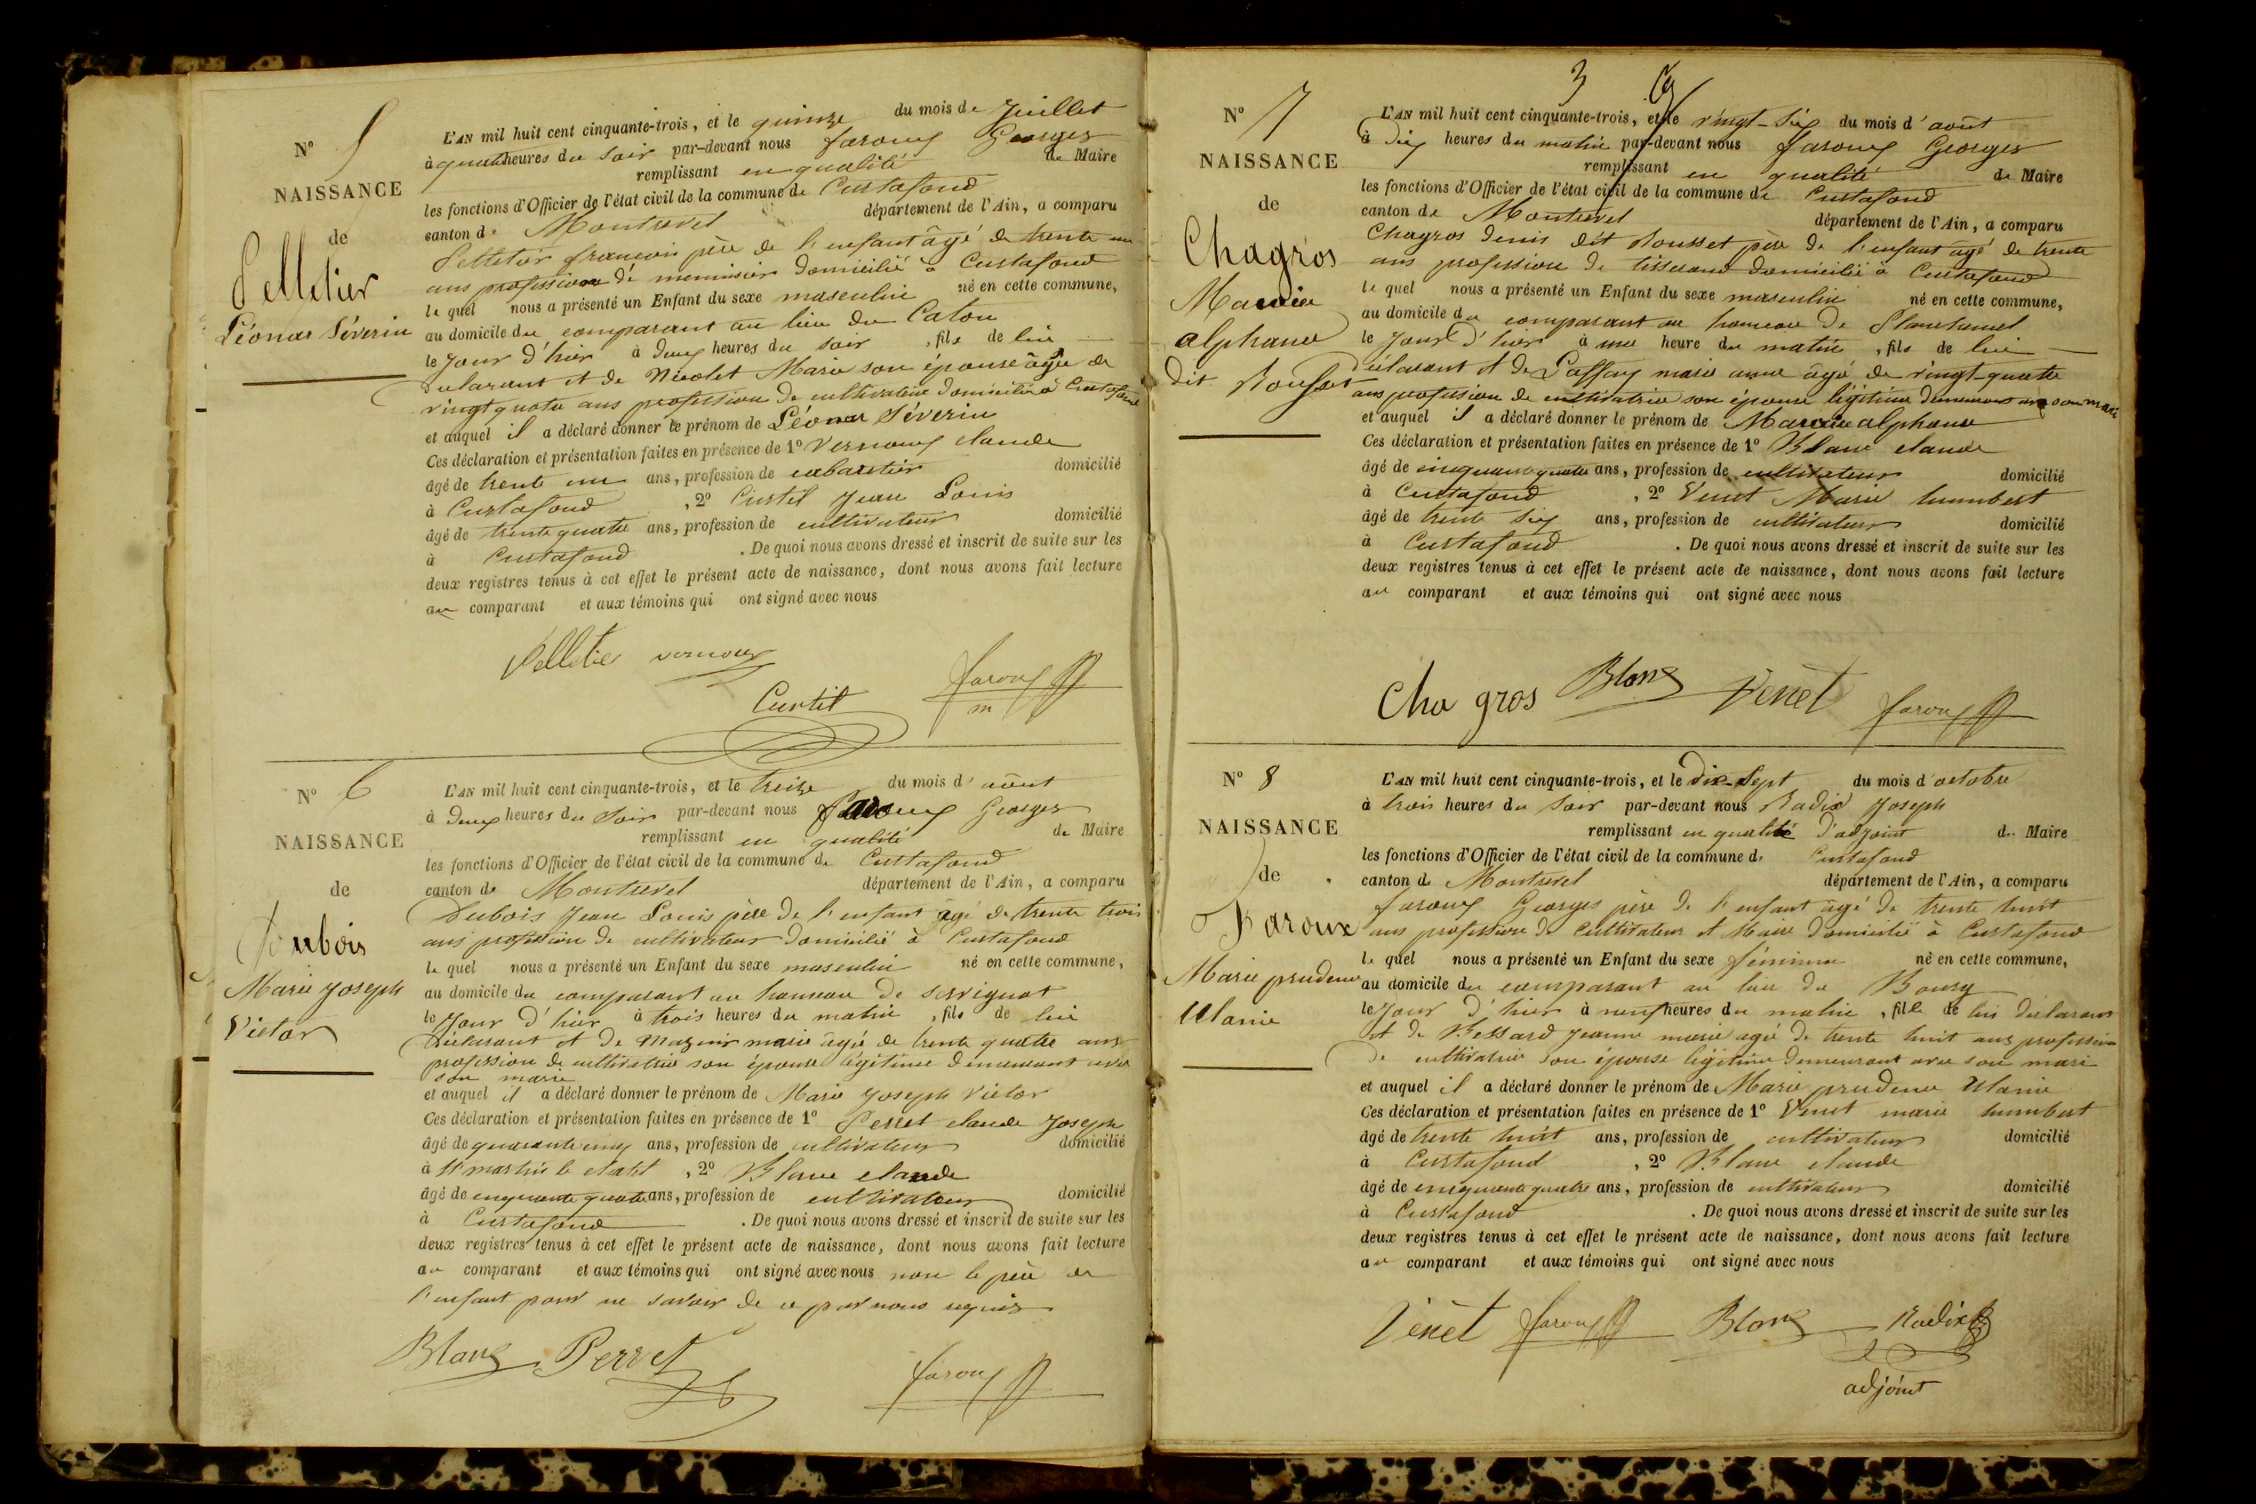 N° 5
NAISSANCE
de
Pelletier
Léonar Séverin
L'AN mil huit cent cinquante-trois, et le quinze du mois de Juillet
à quatre heures du soir par-devant nous faroux Georges
remplissant en qualité de Maire
les fonctions d'Officier de l'état civil de la commune de Curtafond
canton de Montrevel département de l'Ain, a comparu
Pelletier francois père de l'enfant âgé de trente un
ans profession de menuisier domicilié à Curtafond
le quel nous a présenté un Enfant du sexe masculin né en cette commune,
au domicile du comparant au lieu du Caton
le Jour d'hier à deux heures du soir, fils de lui
déclarant et de Nicolet Marie son épouse âgée de
vingt quatre ans profession de cultivatrice domiciliée à Curtafond
et auquel il a déclaré donner le prénom de Léonar Séverin
Ces déclaration et présentation faites en présence de 1° Vernoux claude
âgé de trente un ans, profession de cabaretier domicilié
à Curtafond, 2° Curtil Jean Louis
âgé de trente quatre ans, profession de cultivateur domicilié
à Curtafond. De quoi nous avons dressé et inscrit de suite sur les
deux registres tenus à cet effet le présent acte de naissance, dont nous avons fait lecture
au comparant et aux témoins qui ont signé avec nous
Pelletier vernoux
Curtil faroux
m
N° 6
NAISSANCE
de
Dubois
Marie Joseph
Victor
L'AN mil huit cent cinquante-trois, et le treize du mois d'août
à deux heures du soir par-devant nous faroux Georges
remplissant en qualité de Maire
les fonctions d'Officier de l'état civil de la commune de Curtafond
canton de Montrevel département de l'Ain, a comparu
Dubois Jean Louis père de l'enfant âgé de trente trois
ans profession de cultivateur domicilié à Curtafond
le quel nous a présenté un Enfant du sexe masculin né en cette commune,
au domicile du comparant au hameau de servignat
le Jour d'hier à trois heures du matin, fils de lui
déclarant et de Mazuir marie âgée de trente quatre ans
profession de cultivatrice son épouse légitime demeurant avec
son marie
et auquel il a déclaré donner le prénom de Marie Joseph Victor
Ces déclaration et présentation faites en présence de 1° Perret claude Joseph
âgé de quarante cinq ans, profession de cultivateur domicilié
à St martin le chatel, 2° Blanc claude
âgé de cinquante quatre ans, profession de cultivateur domicilié
à Curtafond. De quoi nous avons dressé et inscrit de suite sur les
deux registres tenus à cet effet le présent acte de naissance, dont nous avons fait lecture
au comparant et aux témoins qui ont signé avec nous non le père de
l'enfant pour ne savoir de ce par nous requis
Blanc Perret faroux
3
N° 7
NAISSANCE
de
Chagros
Marie
alphonse
dit Rousset
L'AN mil huit cent cinquante-trois, et le vingt-six du mois d'août
à dix heures du matin par-devant nous faroux Georges
remplissant en qualité de Maire
les fonctions d'Officier de l'état civil de la commune de Curtafond
canton de Montrevel département de l'Ain, a comparu
Chagros denis dit Rousset père de l'enfant âgé de trente
ans profession de tisserand domicilié à Curtafond
le quel nous a présenté un Enfant du sexe masculin né en cette commune,
au domicile du comparant au hameau de
le Jour d'hier à une heure du matin, fils de lui
déclarant et de Laffay marie anne âgé de vingt-quatre
ans profession de cultivatrice son épouse légitime demeurant avec son mari
et auquel il a déclaré donner le prénom de Marie alphonse
Ces déclaration et présentation faites en présence de 1° Blanc claude
âgé de cinquante quatre ans, profession de cultivateur domicilié
à Curtafond, 2° Venet Marie humbert
âgé de trente six ans, profession de cultivateur domicilié
à Curtafond. De quoi nous avons dressé et inscrit de suite sur les
deux registres tenus à cet effet le présent acte de naissance, dont nous avons fait lecture
au comparant et aux témoins qui ont signé avec nous
Cha gros Blanc Venet faroux
N° 8
NAISSANCE
de
Faroux
Marie prudence
Mlanie
L'AN mil huit cent cinquante-trois, et le dix-sept du mois d'octobre
à trois heures du soir par-devant nous Radix Joseph
remplissant en qualité d'adjoint de Maire
les fonctions d'Officier de l'état civil de la commune de Curtafond
canton de Montrevel département de l'Ain, a comparu
faroux Georges père de l'enfant âgé de trente huit
ans profession de Cultivateur et Maire domicilié à Curtafond
le quel nous a présenté un Enfant du sexe féminin né en cette commune,
au domicile du comparant au lieu du Bourg
le Jour d'hier à neuf heures du matin, fille de lui déclarant
et de Bessard Jeanne marie agée de trente huit ans profession
de cultivatrice son épouse légitime demeurant avec son mari
et auquel il a déclaré donner le prénom de Marie prudence Mlanie
Ces déclaration et présentation faites en présence de 1° Venet marie humbert
âgé de trente huit ans, profession de cultivateur domicilié
à Curtafond, 2° Blanc claude
âgé de cinquante quatre ans, profession de cultivateur domicilié
à Curtafond. De quoi nous avons dressé et inscrit de suite sur les
deux registres tenus à cet effet le présent acte de naissance, dont nous avons fait lecture
au comparant et aux témoins qui ont signé avec nous
Venet faroux Blanc Radix
adjoint